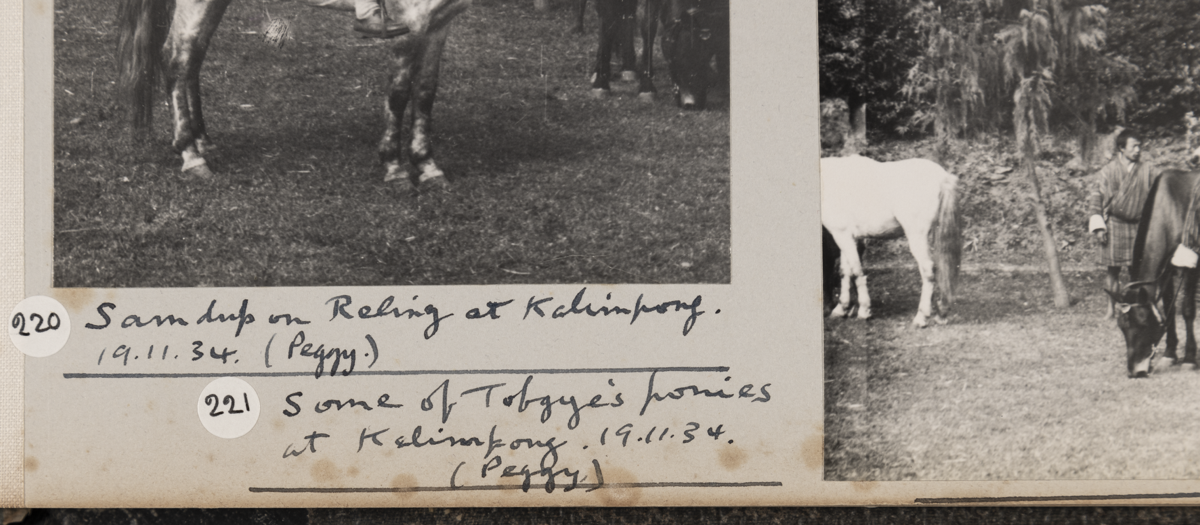 220 Samdup on Reling at Kalimpong.
19.11.34. (Peggy.)
221 Some of Tobgye's ponies
at Kalimpong. 19.11.34.
(Peggy)